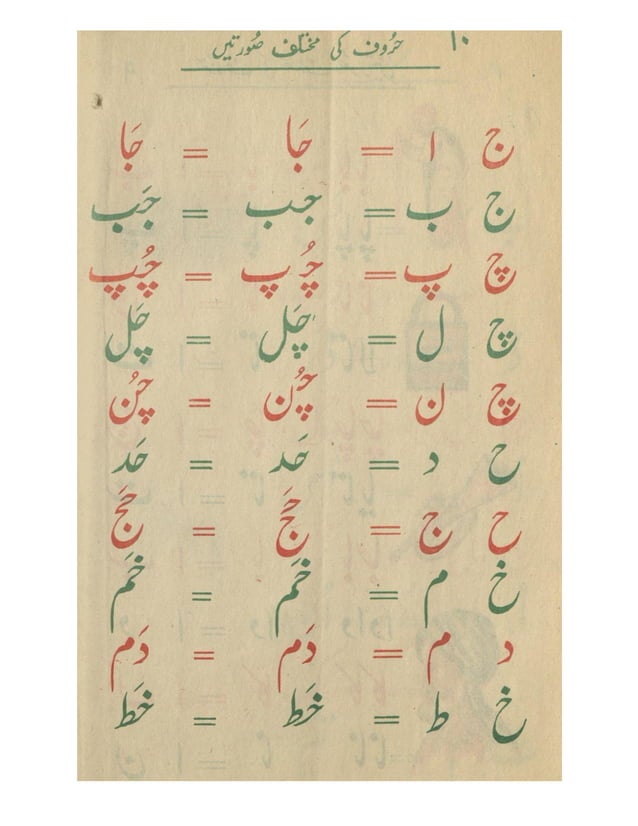 ۱۰ حُرُوف کی مختلف صُورتیں
ج ا = جَا = جَا
ج ب = جَب = جَب
چ پ = چُپ = چُپ
چ ل = چَل = چَل
چ ن = چُن = چُن
ح د = حَد = حَد
ح ج = حَج = حَج
خ م = خَم = خَم
د م = دَم = دَم
خ ط = خَط = خَط